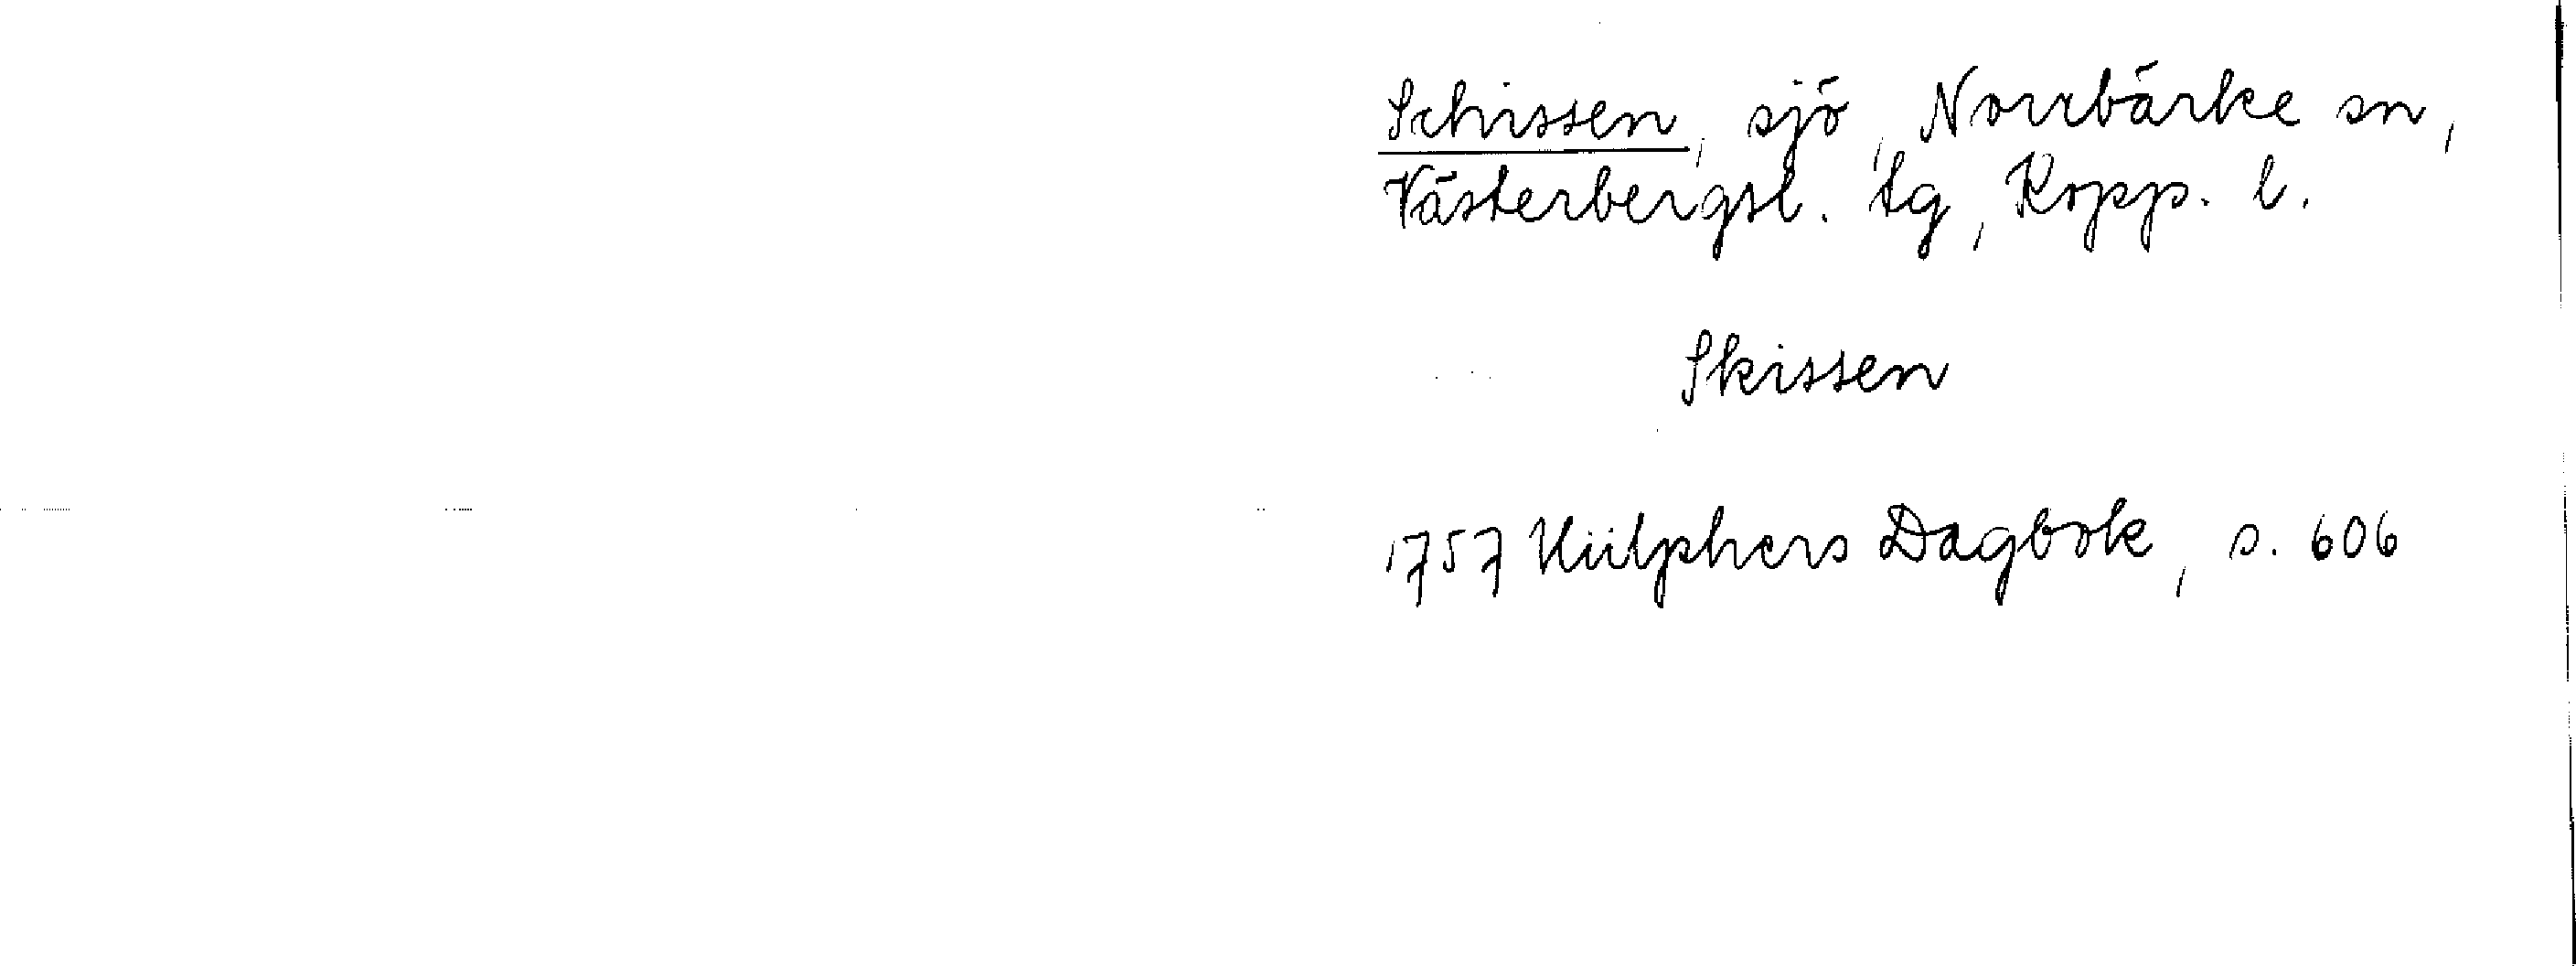 Schissen, sjö, Norrbärke sn,
Västerbergsl. tg, Kopp. l.
Skissen
1757 Hülphers Dagbok, s. 606